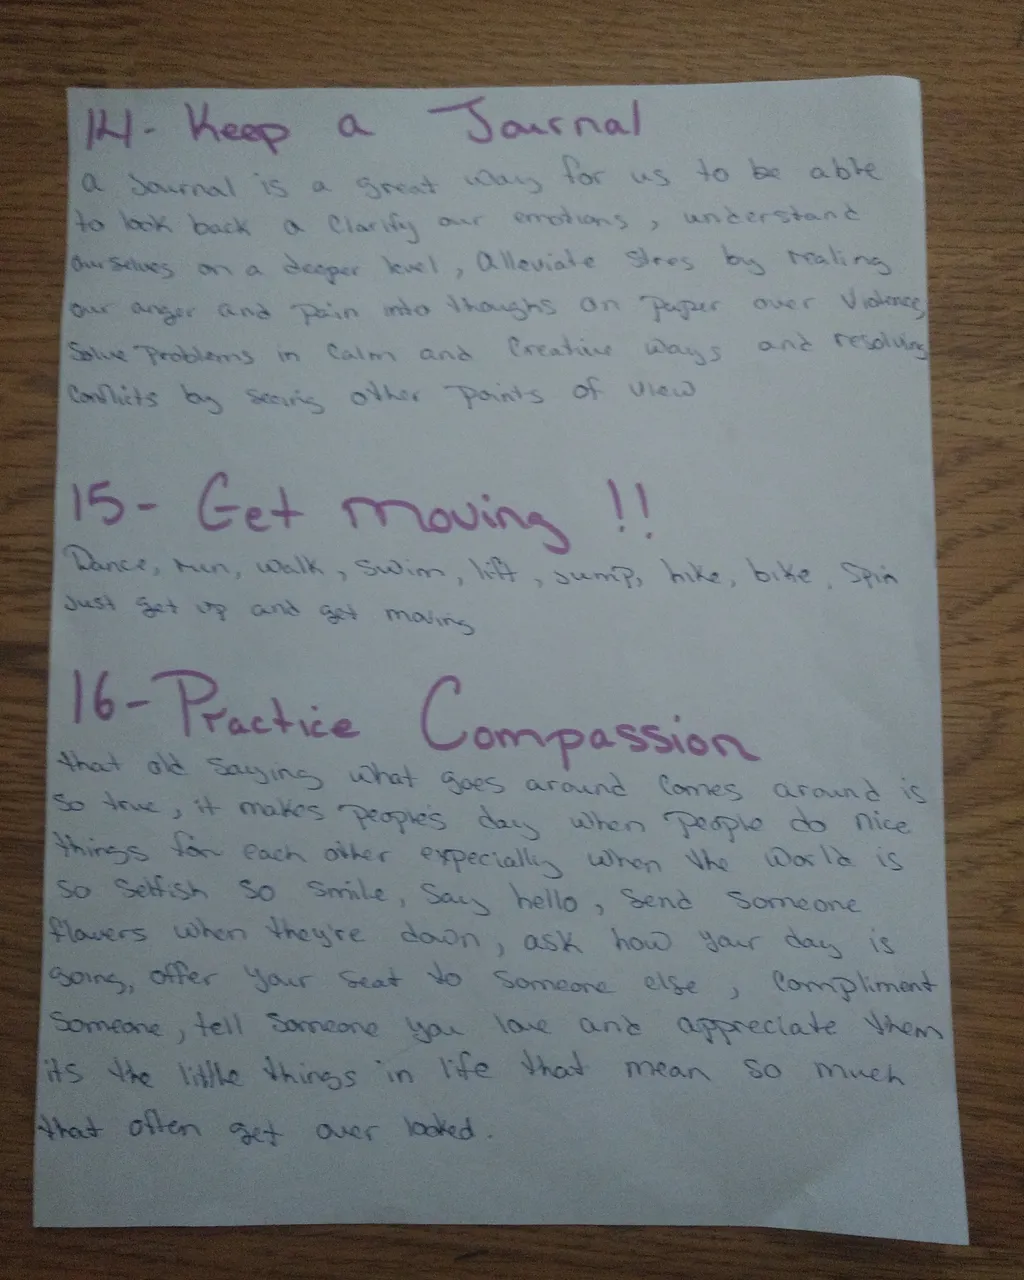 14- Keep a Journal
a Journal is a great way for us to be able
to look back a Clarify our emotions, understand
ourselves on a deeper level, Alleviate stress by
our anger and pain into thoughts on paper over Violence,
Solve Problems in Calm and Creative ways and resolving
Conflicts by seeing other points of view
15- Get moving !!
Dance, run, walk, swim, lift, jump, hike, bike, spin
Just get up and get moving
16- Practice Compassion
that old saying what goes around comes around is
so true, it makes people's day when people do nice
things for each other expecially when the world is
so selfish so smile, say hello, send someone
flowers when they're down, ask how your day is
going, offer your seat to someone else, Compliment
Someone, tell someone you love and appreciate them
its the little things in life that mean so much
that often get over looked.